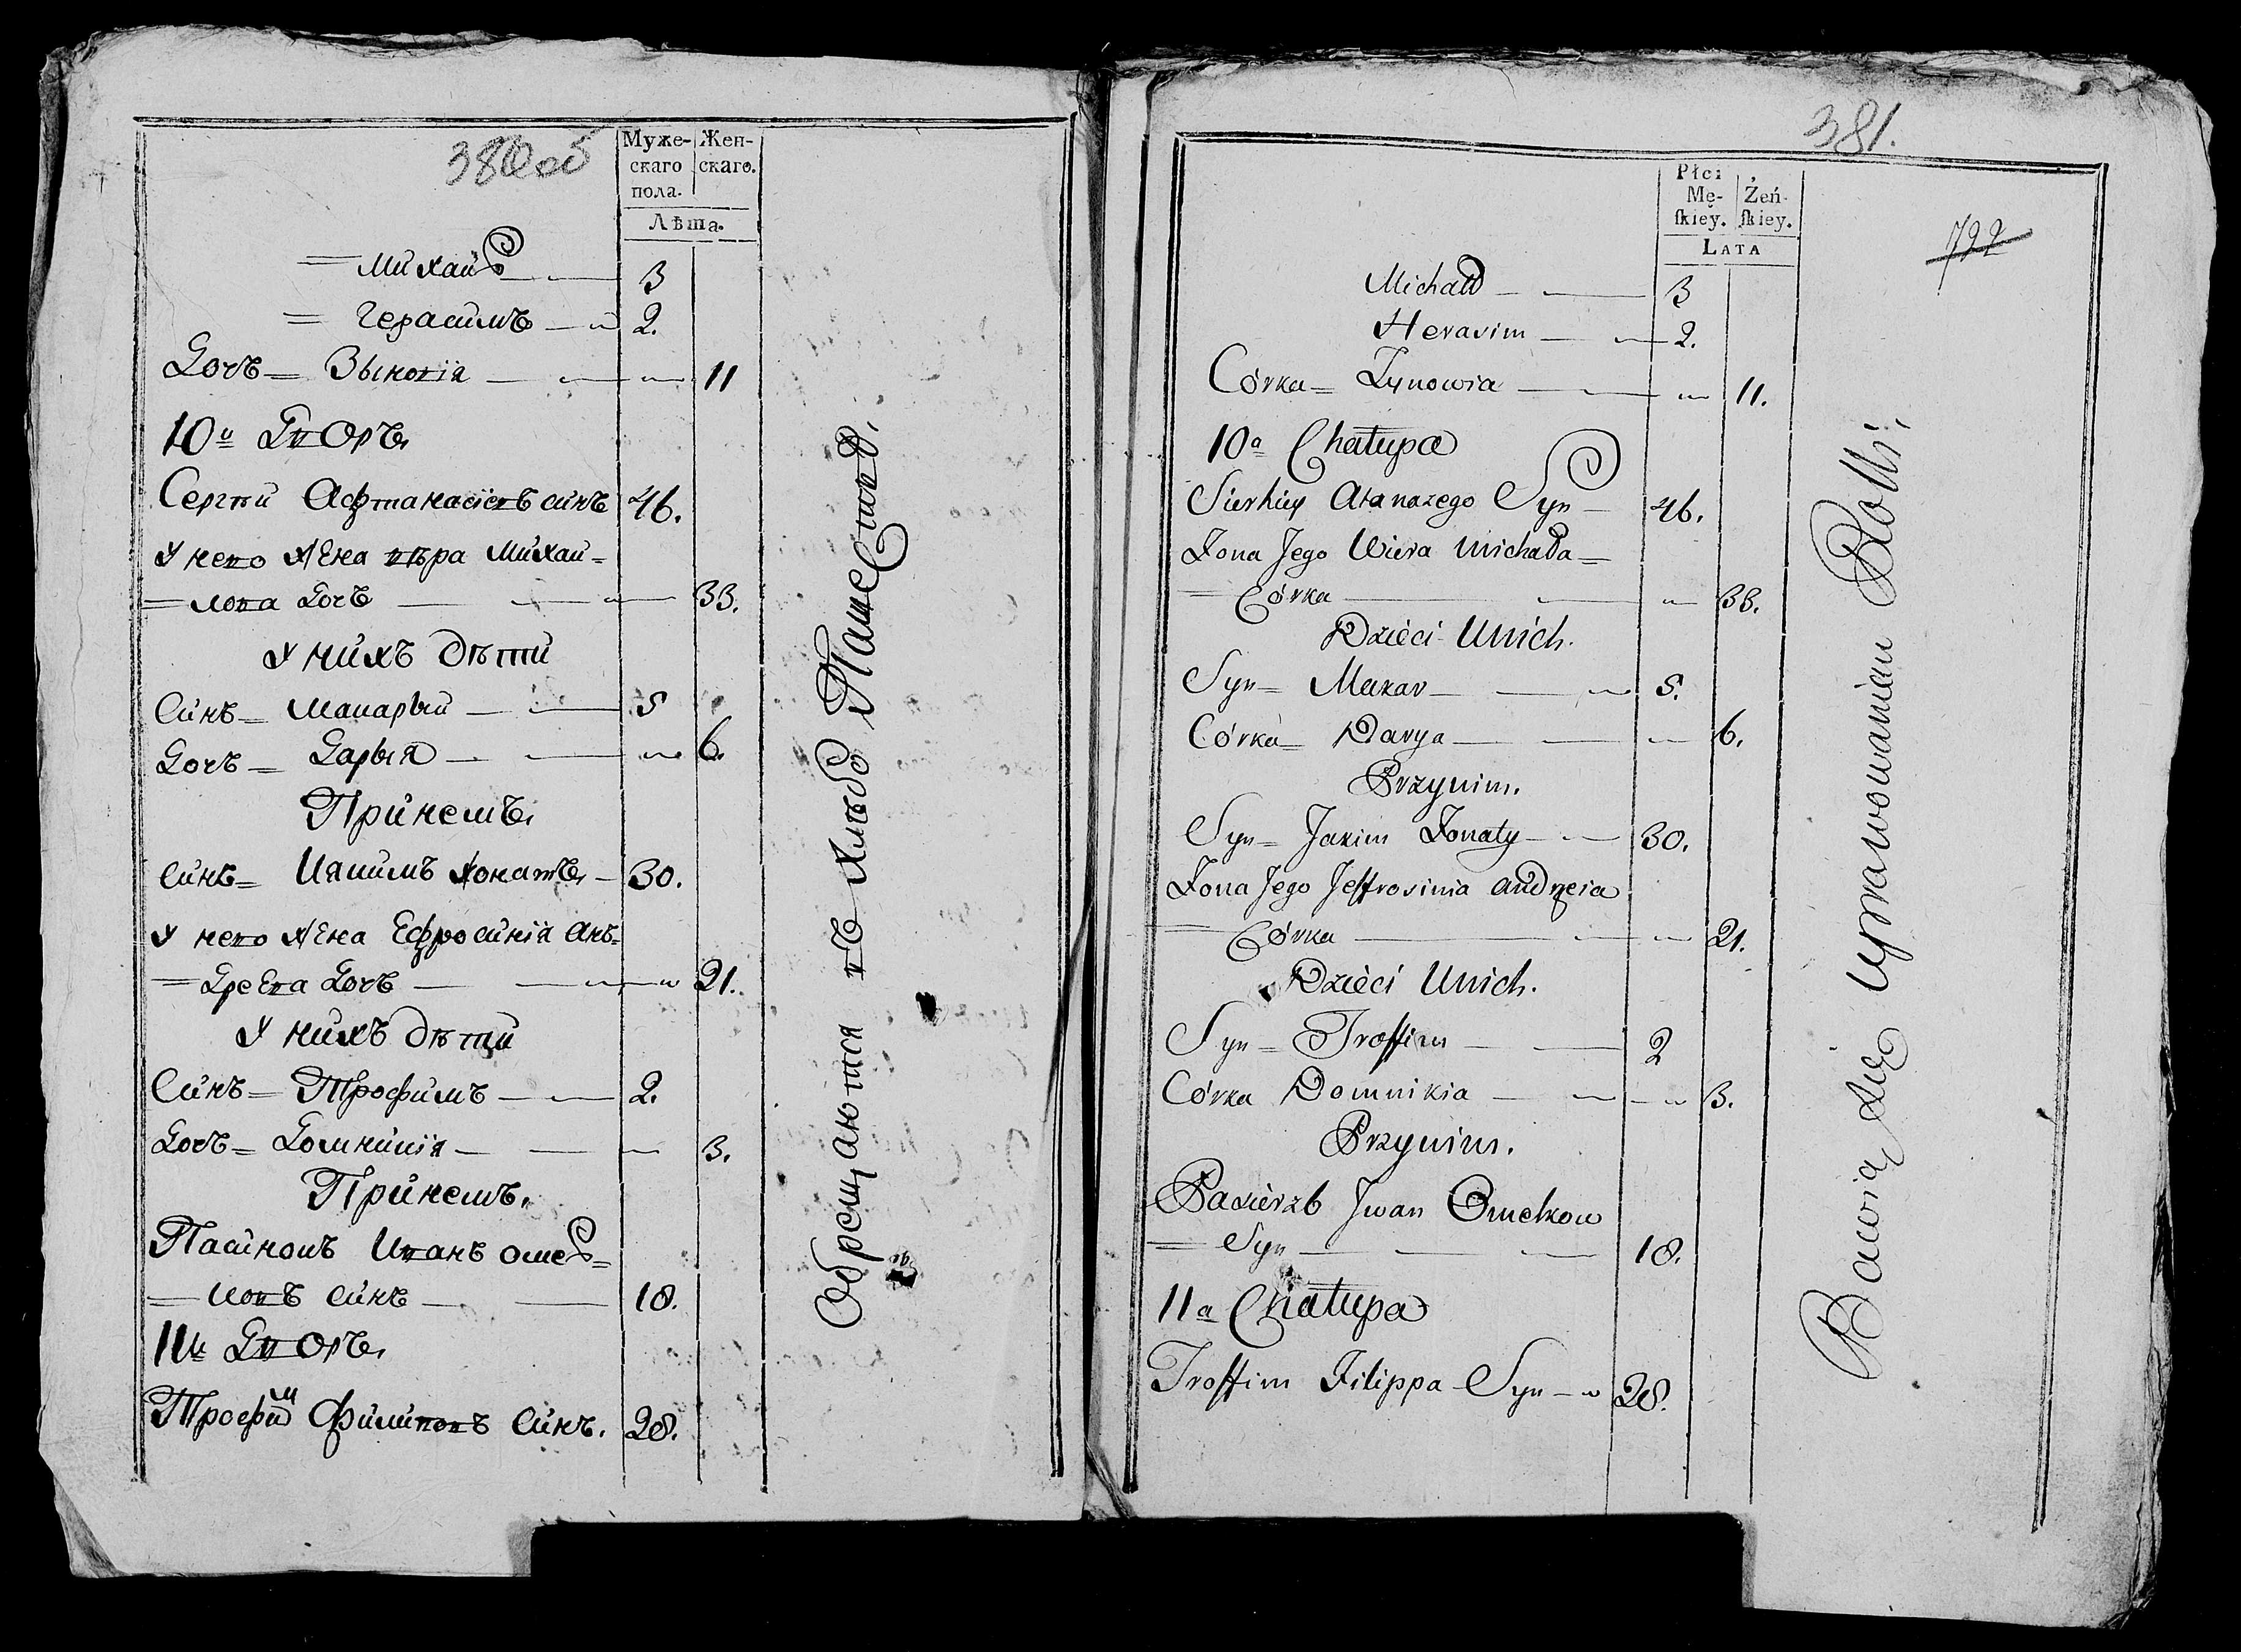 380об
Муже-
скаго
пола.
Жен-
скаго.
Лѣта.
= Михайл 3
= Герасимъ 2.
Дочъ = Зыновія 11
10й Дворъ
Сергѣй Афтанасіевъ синъ 46.
У него жена вѣра Михай=
= лова Дочъ 33.
У нихъ дѣти
Синъ = Макарый 5
Дочъ = Дарыя 6.
При немъ
Синъ = Иякимъ жонатъ 30.
У него жена Ефросинія Ан=
= Дреева Дочъ 21.
У нихъ дѣти
Синъ = Трофимъ 2.
Дочъ = Домникія 3.
При немъ
Пасинокъ Иванъ омел=
= ковъ синъ 18.
11й Дворъ
Трофим Филиповъ Синъ. 28.
Обрещаются въ хлѣбо Пашеством,
381.
Płci
Mę-
skiey.
Żeń-
skiey.
LATA
722
Michałł 3
Herasim 2.
Córka = Zynowia 11.
10a Chałupa
Sierhiey Atanazego Syn 46.
Zona Jego Wiera Michała =
= Córka 33.
Dzieci Unich.
Syn = Makar 5.
Córka = Darya 6.
Przynim.
Syn = Jakim Zonaty 30.
Zona Jego Jeffrosinia Andrzeia
= Córka 21.
Dzieci Unich.
Syn = Troffim 2
Córka Domnikia 3.
Przynim.
Pasierzb Jwan Omelkow
= Syn 18.
11a Chałupa
Troffim Filippa Syn 28.
Bawią się uprawowaniem Rolli,